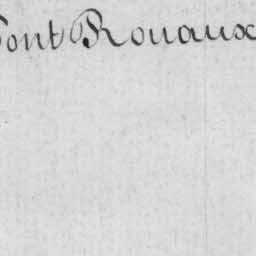 Pont Rouaux